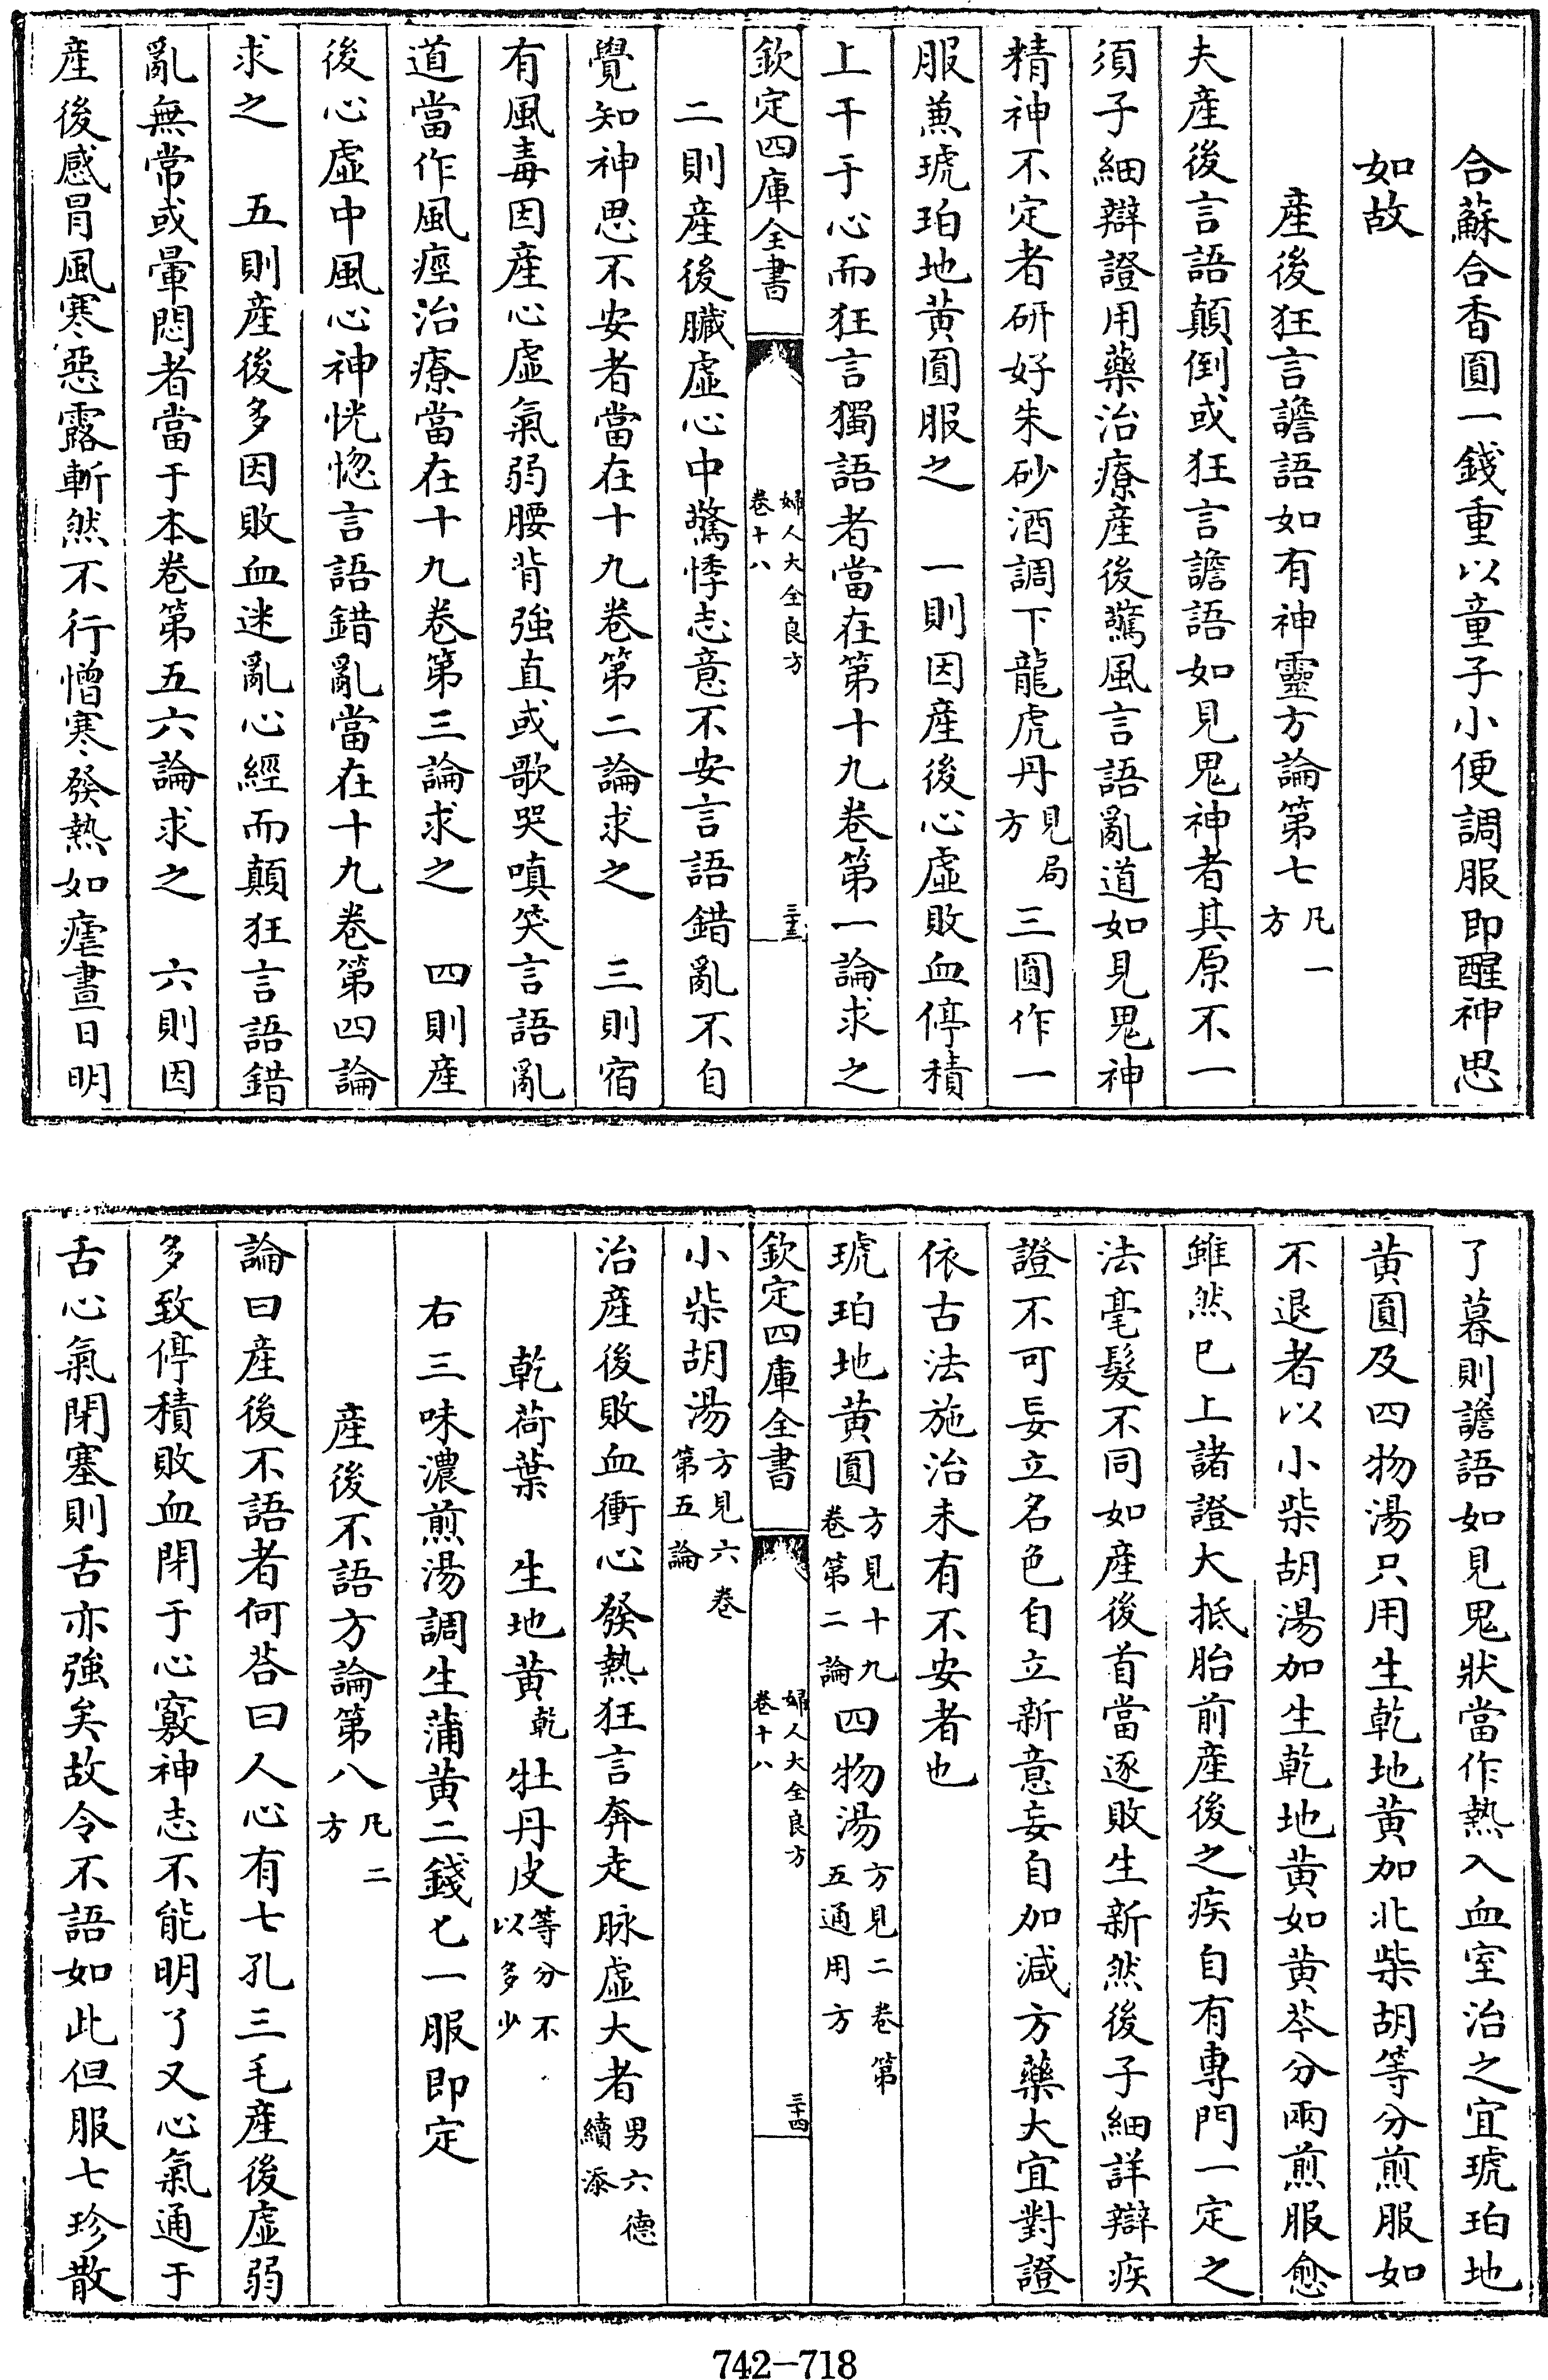 合蘇合香圓一錢重以童子小便調服即醒神思
如故
產後狂言譫語如有神靈方論第七凡一方
夫產後言語顛倒或狂言譫語如見鬼神者其原不一
須子細辯證用藥治療產後驚風言語亂道如見鬼神
精神不定者研好朱砂酒調下龍虎丹見局方三圓作一
服兼琥珀地黃圓服之　一則因產後心虛敗血停積
上干于心而狂言獨語者當在第十九卷第一論求之
欽定四庫全書　婦人大全良方卷十八　三十三
二則產後臟虛心中驚悸志意不安言語錯亂不自
覺知神思不安者當在十九卷第二論求之　三則宿
有風毒因產心虛氣弱腰背強直或歌哭嗔笑言語亂
道當作風痙治療當在十九卷第三論求之　四則產
後心虛中風心神恍惚言語錯亂當在十九卷第四論
求之　五則產後多因敗血迷亂心經而顛狂言語錯
亂無常或暈悶者當于本卷第五六論求之　六則因
產後感冒風寒惡露斬然不行憎寒發熱如瘧晝日明
了暮則譫語如見鬼狀當作熱入血室治之宜琥珀地
黃圓及四物湯只用生乾地黃加北柴胡等分煎服如
不退者以小柴胡湯加生乾地黃如黃芩分兩煎服愈
雖然已上諸證大抵胎前產後之疾自有專門一定之
法毫髮不同如產後首當逐敗生新然後子細詳辯疾
證不可妄立名色自立新意妄自加減方藥大宜對證
依古法施治未有不安者也
琥珀地黃圓方見十九卷第二論四物湯方見二卷第五通用方
欽定四庫全書　婦人大全良方卷十八　三十四
小柴胡湯方見六卷第五論
治產後敗血衝心發熱狂言奔走脉虛大者男六德續添
乾荷葉　生地黃乾　牡丹皮等分不以多少
右三味濃煎湯調生蒲黃二錢匕一服即定
產後不語方論第八凡二方
論曰產後不語者何荅曰人心有七孔三毛產後虛弱
多致停積敗血閉于心竅神志不能明了又心氣通于
舌心氣閉塞則舌亦強矣故令不語如此但服七珍散
742-718